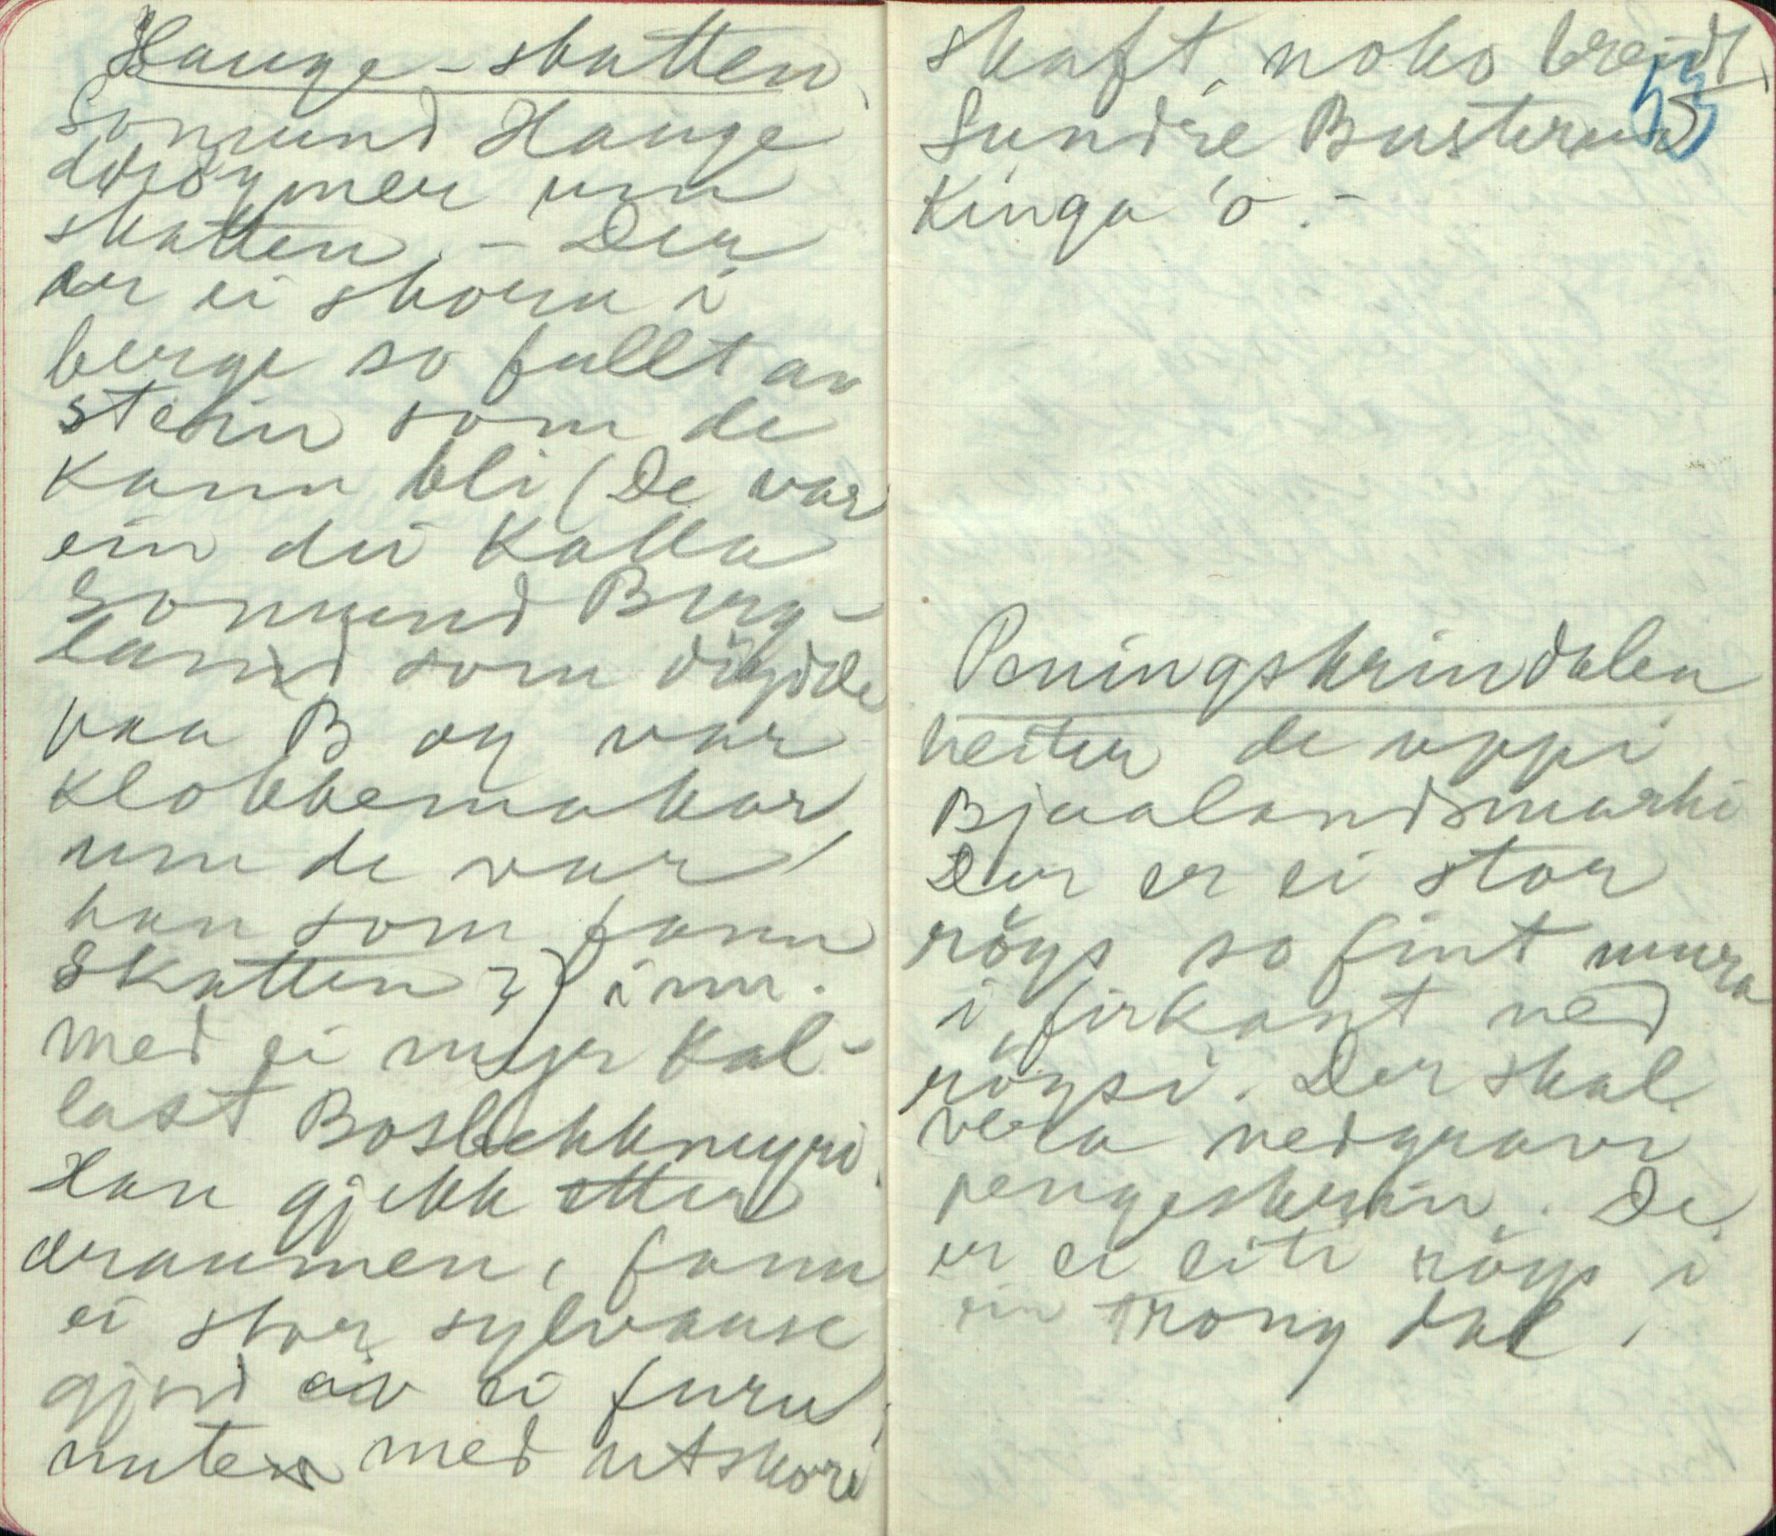 Hauge-skatten
Sonmund Hauge
dröymer um
skatten. - Der
er ei skoru i
berge so fullt av
stein som de
kann bli (De var
ein dei kalla
Sonmund Berg-
land som dögdde
paa B og var
klokkemakar,
um de var
han som fann
skatten?) inn.
med ei myr kal-
last Boslekkmyri.
Han gjekk etter
draumen, fann
ei stor sylvause
gjord av ei furu
nute med utskore
skaft, noko breidt.
53
Sundre Busterud
Kinga 'o. -
Peningskrindalen
heiter de uppi
Bjaalandsmarki
Der er ei stor
röys so fint mura
i firkant ned
röysi. Der skal
vera nedgravi
pengeskrin. De
er ei eiti röys i
ein trong dal.